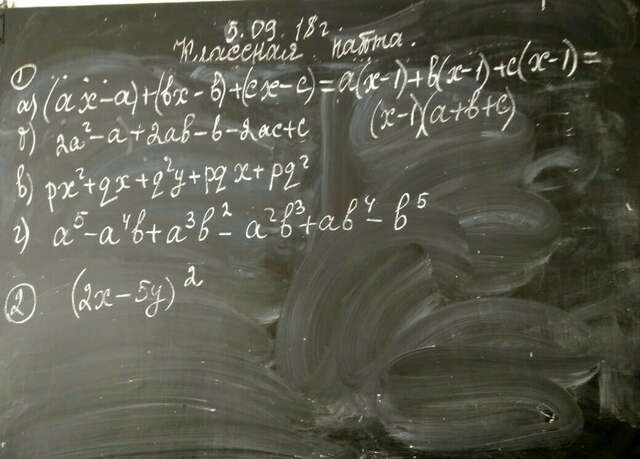 5.09.18г.
Классная работа.
①
а) (ax-a)+(bx-b)+(cx-c)=a(x-1)+b(x-1)+c(x-1)=
(x-1)(a+b+c)
б) 2a²-a+2ab-b-2ac+c
в) px²+qx+q²y+pqx+pq²
г) a⁵-a⁴b+a³b²-a²b³+ab⁴-b⁵
② (2x-5y)²